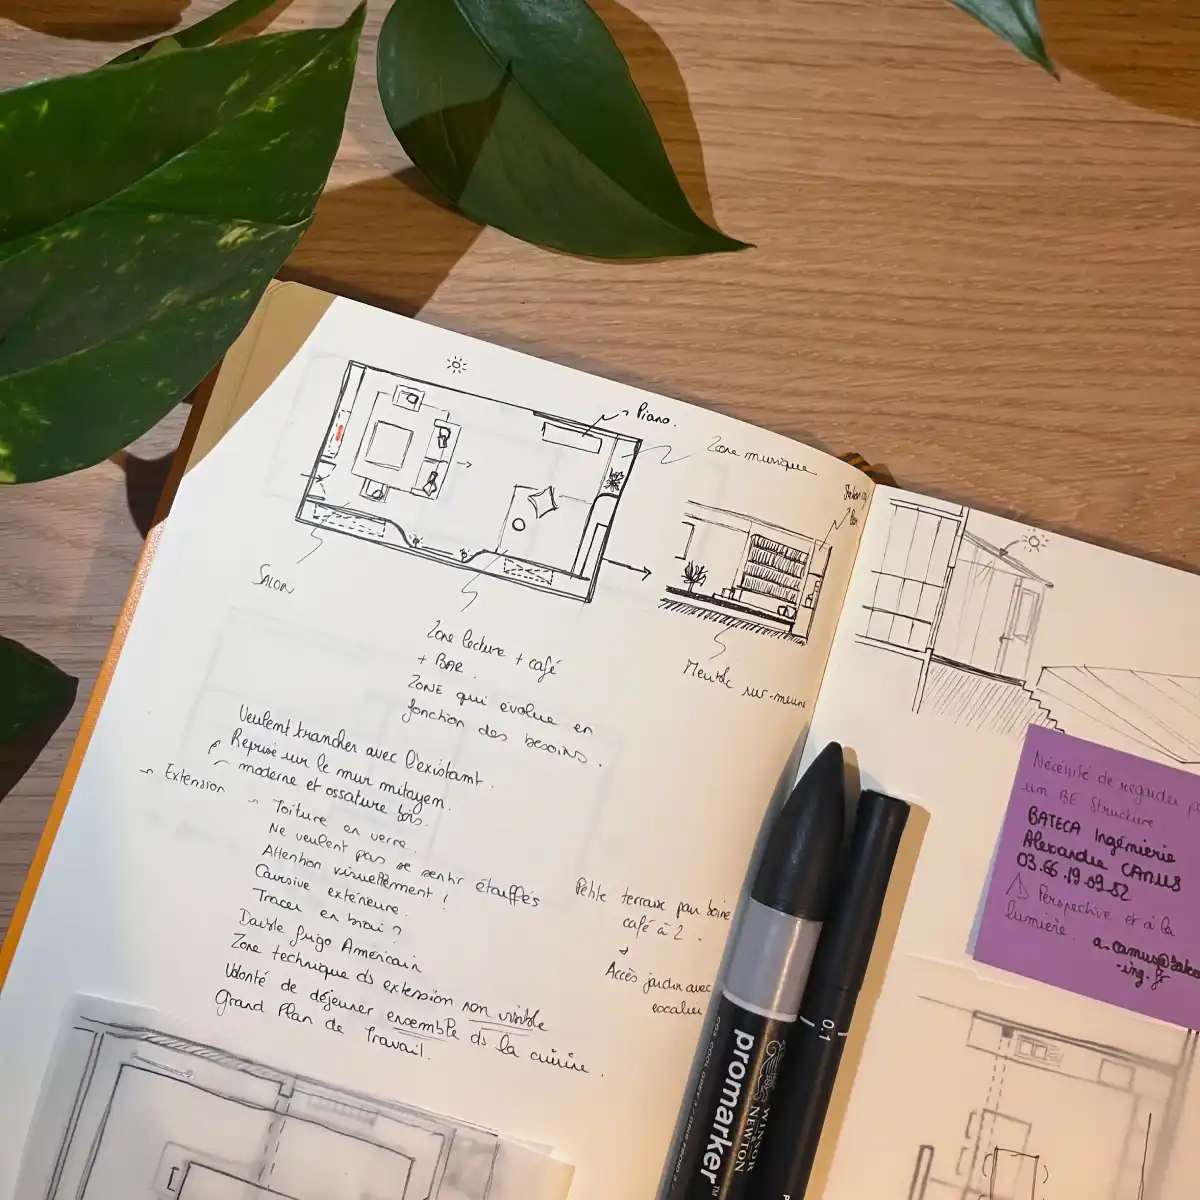 Piano.
Zone musique
SALON
Zone lecture + café
+ BAR.
ZONE qui évolue en
fonction des besoins.
Meuble sur-mesure
Veulent trancher avec l'existant.
Reprise sur le mur mitoyen.
moderne et ossature bois.
Extension
Toiture en verre.
Ne veulent pas se sentir étouffés
Attention visuellement !
Coursive extérieure.
Tracer en biais ?
Double frigo Américain
Zone technique ds extension non visible
Volonté de déjeuner ensemble ds la cuisine.
Grand Plan de Travail.
Petite terrasse pour boire
café à 2.
Accès jardin avec
escalier
Nécessité de regarder
un BE Structure.
BATECA Ingénierie
Alexandre CAMUS
03.66.19.09.52
Perspective et à la
lumière.
a.camus@
-ing.fr
0.1
promarker™
WINSOR
& NEWTON